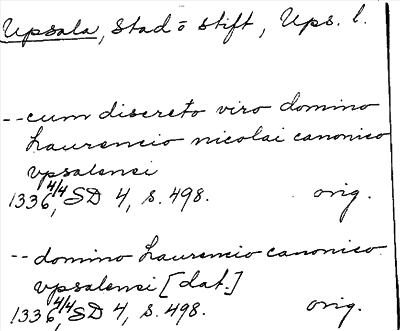 Upsala, Stad o Stift, Ups. l.
-- cum discreto viro domino
Laurencio nicolai canonico
vpsalensi
1336 4/4, SD 4, s. 498. orig.
-- domino Laurencio canonico
vpsalensi [dat.]
1336 4/4, SD 4, s. 498. orig.